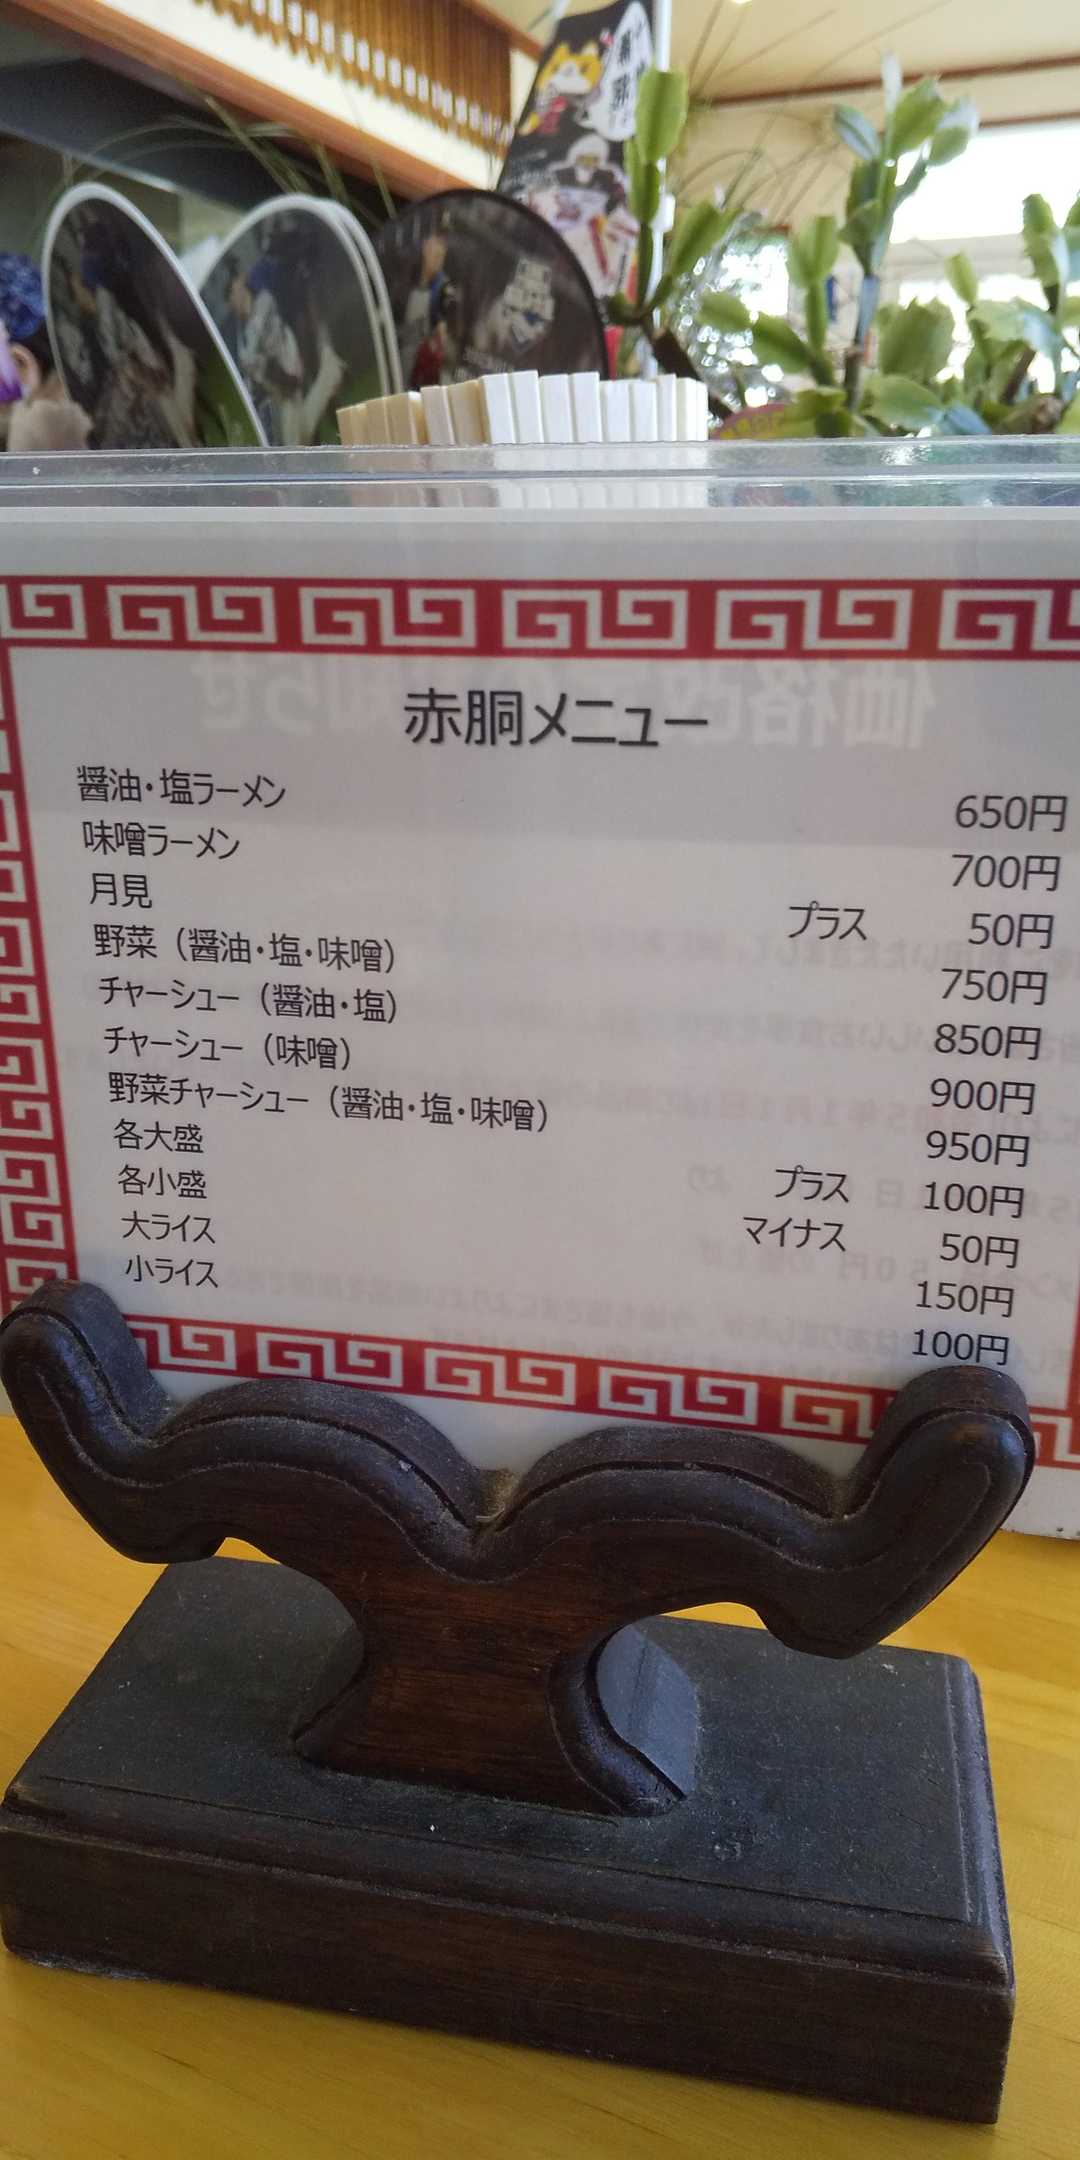 赤胴メニュー
醤油・塩ラーメン 650円
味噌ラーメン 700円
月見 プラス 50円
野菜（醤油・塩・味噌） 750円
チャーシュー（醤油・塩） 850円
チャーシュー（味噌） 900円
野菜チャーシュー（醤油・塩・味噌） 950円
各大盛 プラス 100円
各小盛 マイナス 50円
大ライス 150円
小ライス 100円